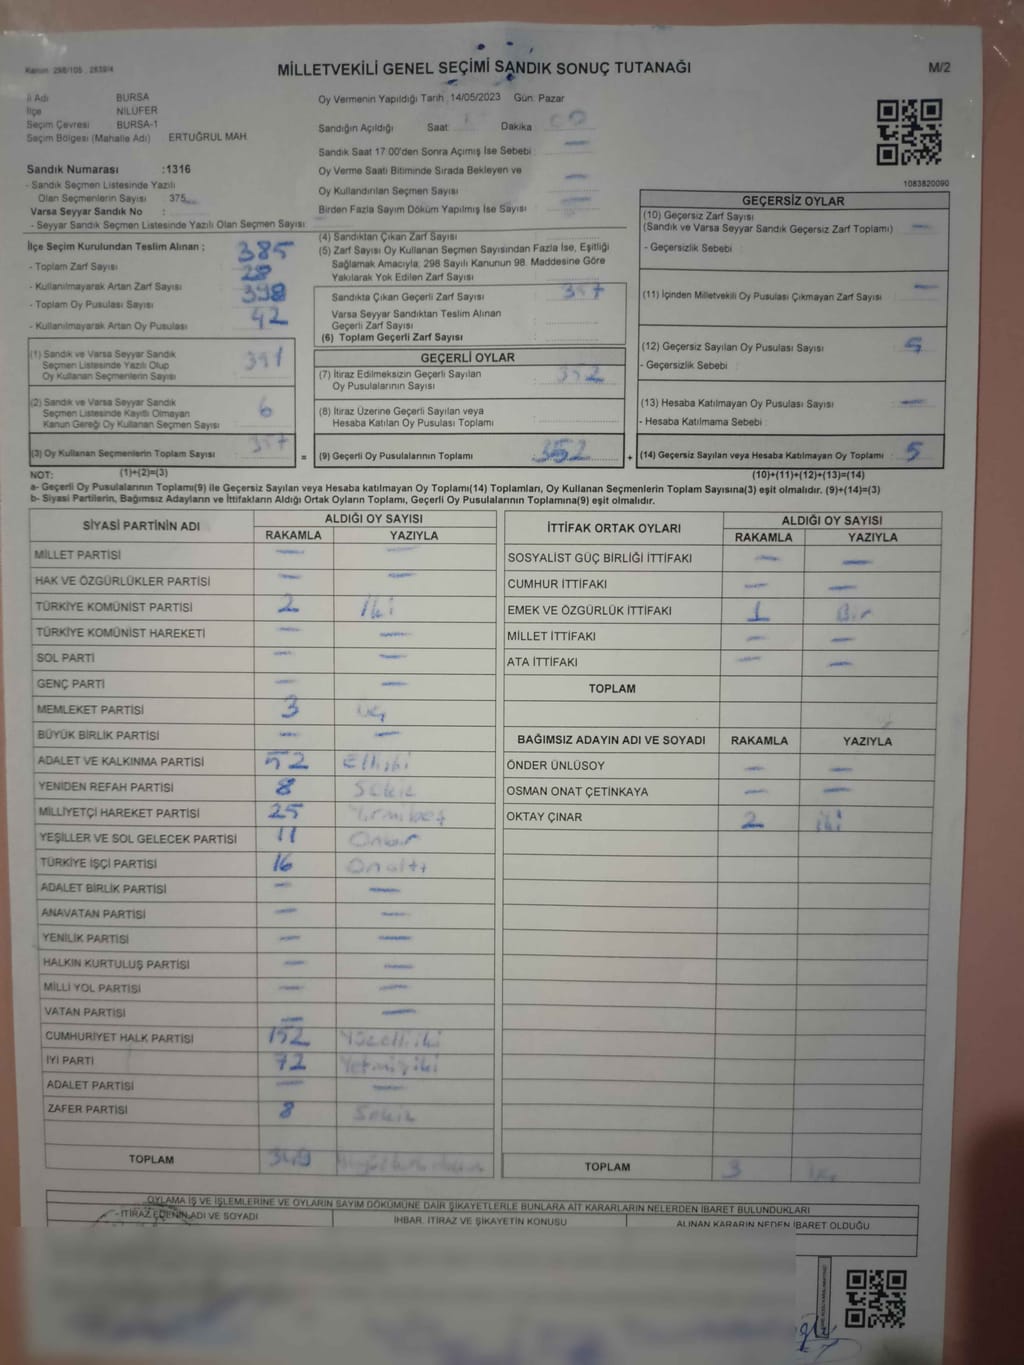 Kanun: 298/105 , 2839/4
MİLLETVEKİLİ GENEL SEÇİMİ SANDIK SONUÇ TUTANAĞI
M/2
İl Adı BURSA
İlçe NİLÜFER
Seçim Çevresi BURSA-1
Seçim Bölgesi (Mahalle Adı) ERTUĞRUL MAH.
Sandık Numarası :1316
- Sandık Seçmen Listesinde Yazılı
Olan Seçmenlerin Sayısı 375
Varsa Seyyar Sandık No :
- Seyyar Sandık Seçmen Listesinde Yazılı Olan Seçmen Sayısı
Oy Vermenin Yapıldığı Tarih :14/05/2023 Gün: Pazar
Sandığın Açıldığı Saat Dakika
Sandık Saat 17:00'den Sonra Açımış İse Sebebi : —
Oy Verme Saati Bitiminde Sırada Bekleyen ve
Oy Kullandırılan Seçmen Sayısı —
Birden Fazla Sayım Döküm Yapılmış İse Sayısı —
1083820090
İlçe Seçim Kurulundan Teslim Alınan ;
- Toplam Zarf Sayısı 385
- Kullanılmayarak Artan Zarf Sayısı 28
- Toplam Oy Pusulası Sayısı 398
- Kullanılmayarak Artan Oy Pusulası 42
(1) Sandık ve Varsa Seyyar Sandık
Seçmen Listesinde Yazılı Olup
Oy Kullanan Seçmenlerin Sayısı
(2) Sandık ve Varsa Seyyar Sandık
Seçmen Listesinde Kayıtlı Olmayan
Kanun Gereği Oy Kullanan Seçmen Sayısı 6
(3) Oy Kullanan Seçmenlerin Toplam Sayısı 357
(1)+(2)=(3)
(4) Sandıktan Çıkan Zarf Sayısı
(5) Zarf Sayısı Oy Kullanan Seçmen Sayısından Fazla İse, Eşitliği
Sağlamak Amacıyla, 298 Sayılı Kanunun 98. Maddesine Göre
Yakılarak Yok Edilen Zarf Sayısı
Sandıkta Çıkan Geçerli Zarf Sayısı 357
Varsa Seyyar Sandıktan Teslim Alınan
Geçerli Zarf Sayısı
(6) Toplam Geçerli Zarf Sayısı
GEÇERLİ OYLAR
(7) İtiraz Edilmeksizin Geçerli Sayılan
Oy Pusulalarının Sayısı 352
(8) İtiraz Üzerine Geçerli Sayılan veya
Hesaba Katılan Oy Pusulası Toplamı
= (9) Geçerli Oy Pusulalarının Toplamı 352 +
GEÇERSİZ OYLAR
(10) Geçersiz Zarf Sayısı
(Sandık ve Varsa Seyyar Sandık Geçersiz Zarf Toplamı) —
- Geçersizlik Sebebi :
(11) İçinden Milletvekili Oy Pusulası Çıkmayan Zarf Sayısı —
(12) Geçersiz Sayılan Oy Pusulası Sayısı 5
- Geçersizlik Sebebi :
(13) Hesaba Katılmayan Oy Pusulası Sayısı —
- Hesaba Katılmama Sebebi :
(14) Geçersiz Sayılan veya Hesaba Katılmayan Oy Toplamı 5
(10)+(11)+(12)+(13)=(14)
NOT:
a- Geçerli Oy Pusulalarının Toplamı(9) ile Geçersiz Sayılan veya Hesaba katılmayan Oy Toplamı(14) Toplamları, Oy Kullanan Seçmenlerin Toplam Sayısına(3) eşit olmalıdır. (9)+(14)=(3)
b- Siyasi Partilerin, Bağımsız Adayların ve İttifakların Aldığı Ortak Oyların Toplamı, Geçerli Oy Pusulalarının Toplamına(9) eşit olmalıdır.
SİYASİ PARTİNİN ADI ALDIĞI OY SAYISI
RAKAMLA YAZIYLA
MİLLET PARTİSİ — —
HAK VE ÖZGÜRLÜKLER PARTİSİ — —
TÜRKİYE KOMÜNİST PARTİSİ 2 İki
TÜRKİYE KOMÜNİST HAREKETİ — —
SOL PARTİ — —
GENÇ PARTİ — —
MEMLEKET PARTİSİ 3 Üç
BÜYÜK BİRLİK PARTİSİ — —
ADALET VE KALKINMA PARTİSİ 52 Elliiki
YENİDEN REFAH PARTİSİ 8 Sekiz
MİLLİYETÇİ HAREKET PARTİSİ 25 Yirmibeş
YEŞİLLER VE SOL GELECEK PARTİSİ 11 Onbir
TÜRKİYE İŞÇİ PARTİSİ 16 Onaltı
ADALET BİRLİK PARTİSİ — —
ANAVATAN PARTİSİ — —
YENİLİK PARTİSİ — —
HALKIN KURTULUŞ PARTİSİ — —
MİLLİ YOL PARTİSİ — —
VATAN PARTİSİ — —
CUMHURİYET HALK PARTİSİ 152 Yüzelliiki
İYİ PARTİ 72 Yetmişiki
ADALET PARTİSİ — —
ZAFER PARTİSİ 8 Sekiz
TOPLAM 349
İTTİFAK ORTAK OYLARI ALDIĞI OY SAYISI
RAKAMLA YAZIYLA
SOSYALİST GÜÇ BİRLİĞİ İTTİFAKI — —
CUMHUR İTTİFAKI — —
EMEK VE ÖZGÜRLÜK İTTİFAKI 1 Bir
MİLLET İTTİFAKI — —
ATA İTTİFAKI — —
TOPLAM
BAĞIMSIZ ADAYIN ADI VE SOYADI RAKAMLA YAZIYLA
ÖNDER ÜNLÜSOY — —
OSMAN ONAT ÇETİNKAYA — —
OKTAY ÇINAR 2 İki
TOPLAM 3 Üç
OYLAMA İŞ VE İŞLEMLERİNE VE OYLARIN SAYIM DÖKÜMÜNE DAİR ŞİKAYETLERLE BUNLARA AİT KARARLARIN NELERDEN İBARET BULUNDUKLARI
İTİRAZ EDENİN ADI VE SOYADI İHBAR, İTİRAZ VE ŞİKAYETİN KONUSU ALINAN KARARIN NEDEN İBARET OLDUĞU